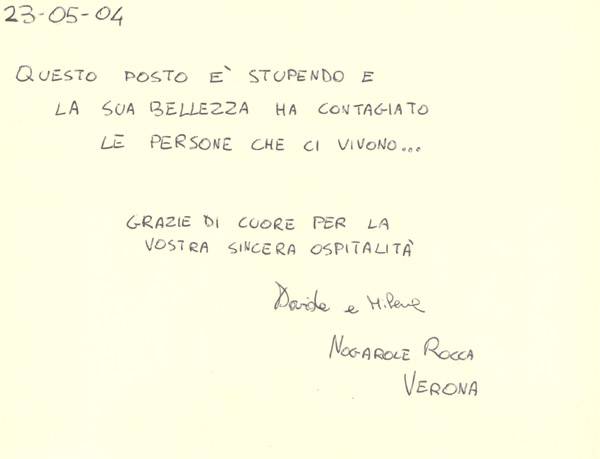 23-05-04
QUESTO POSTO E' STUPENDO E
LA SUA BELLEZZA HA CONTAGIATO
LE PERSONE CHE CI VIVONO...
GRAZIE DI CUORE PER LA
VOSTRA SINCERA OSPITALITÀ
Davide e Milena
NOGAROLE ROCCA
VERONA